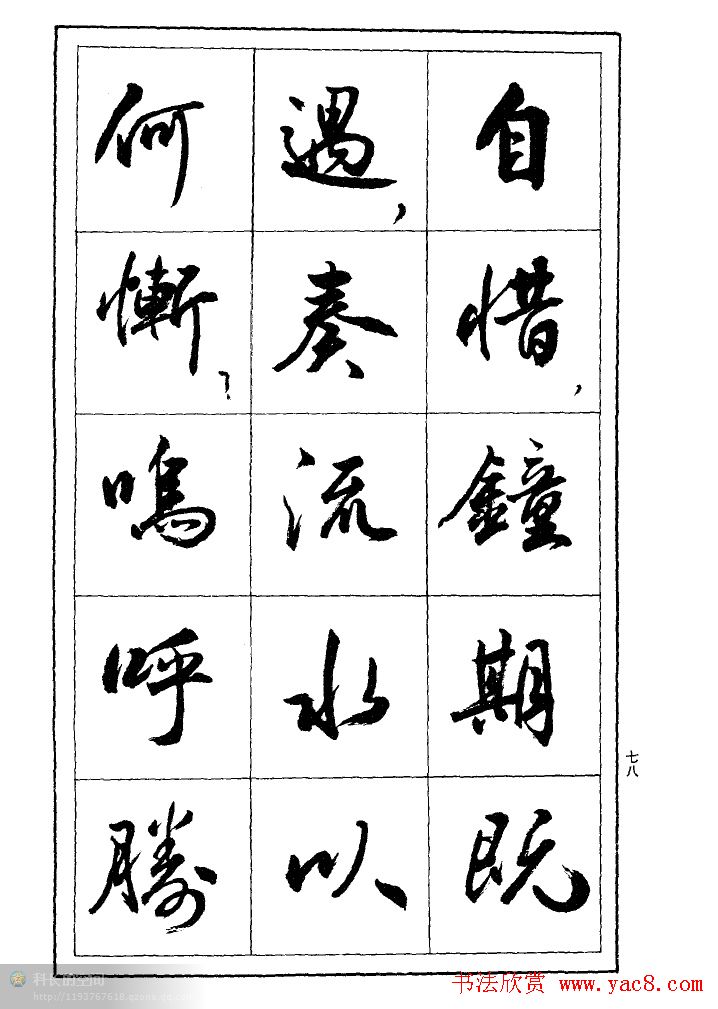 自惜,鐘期既
遇,奏流水以
何慚?鳴呼勝
七八
科长的空间
http://1193767618.qzone.qq.com
书法欣赏 www.yac8.com